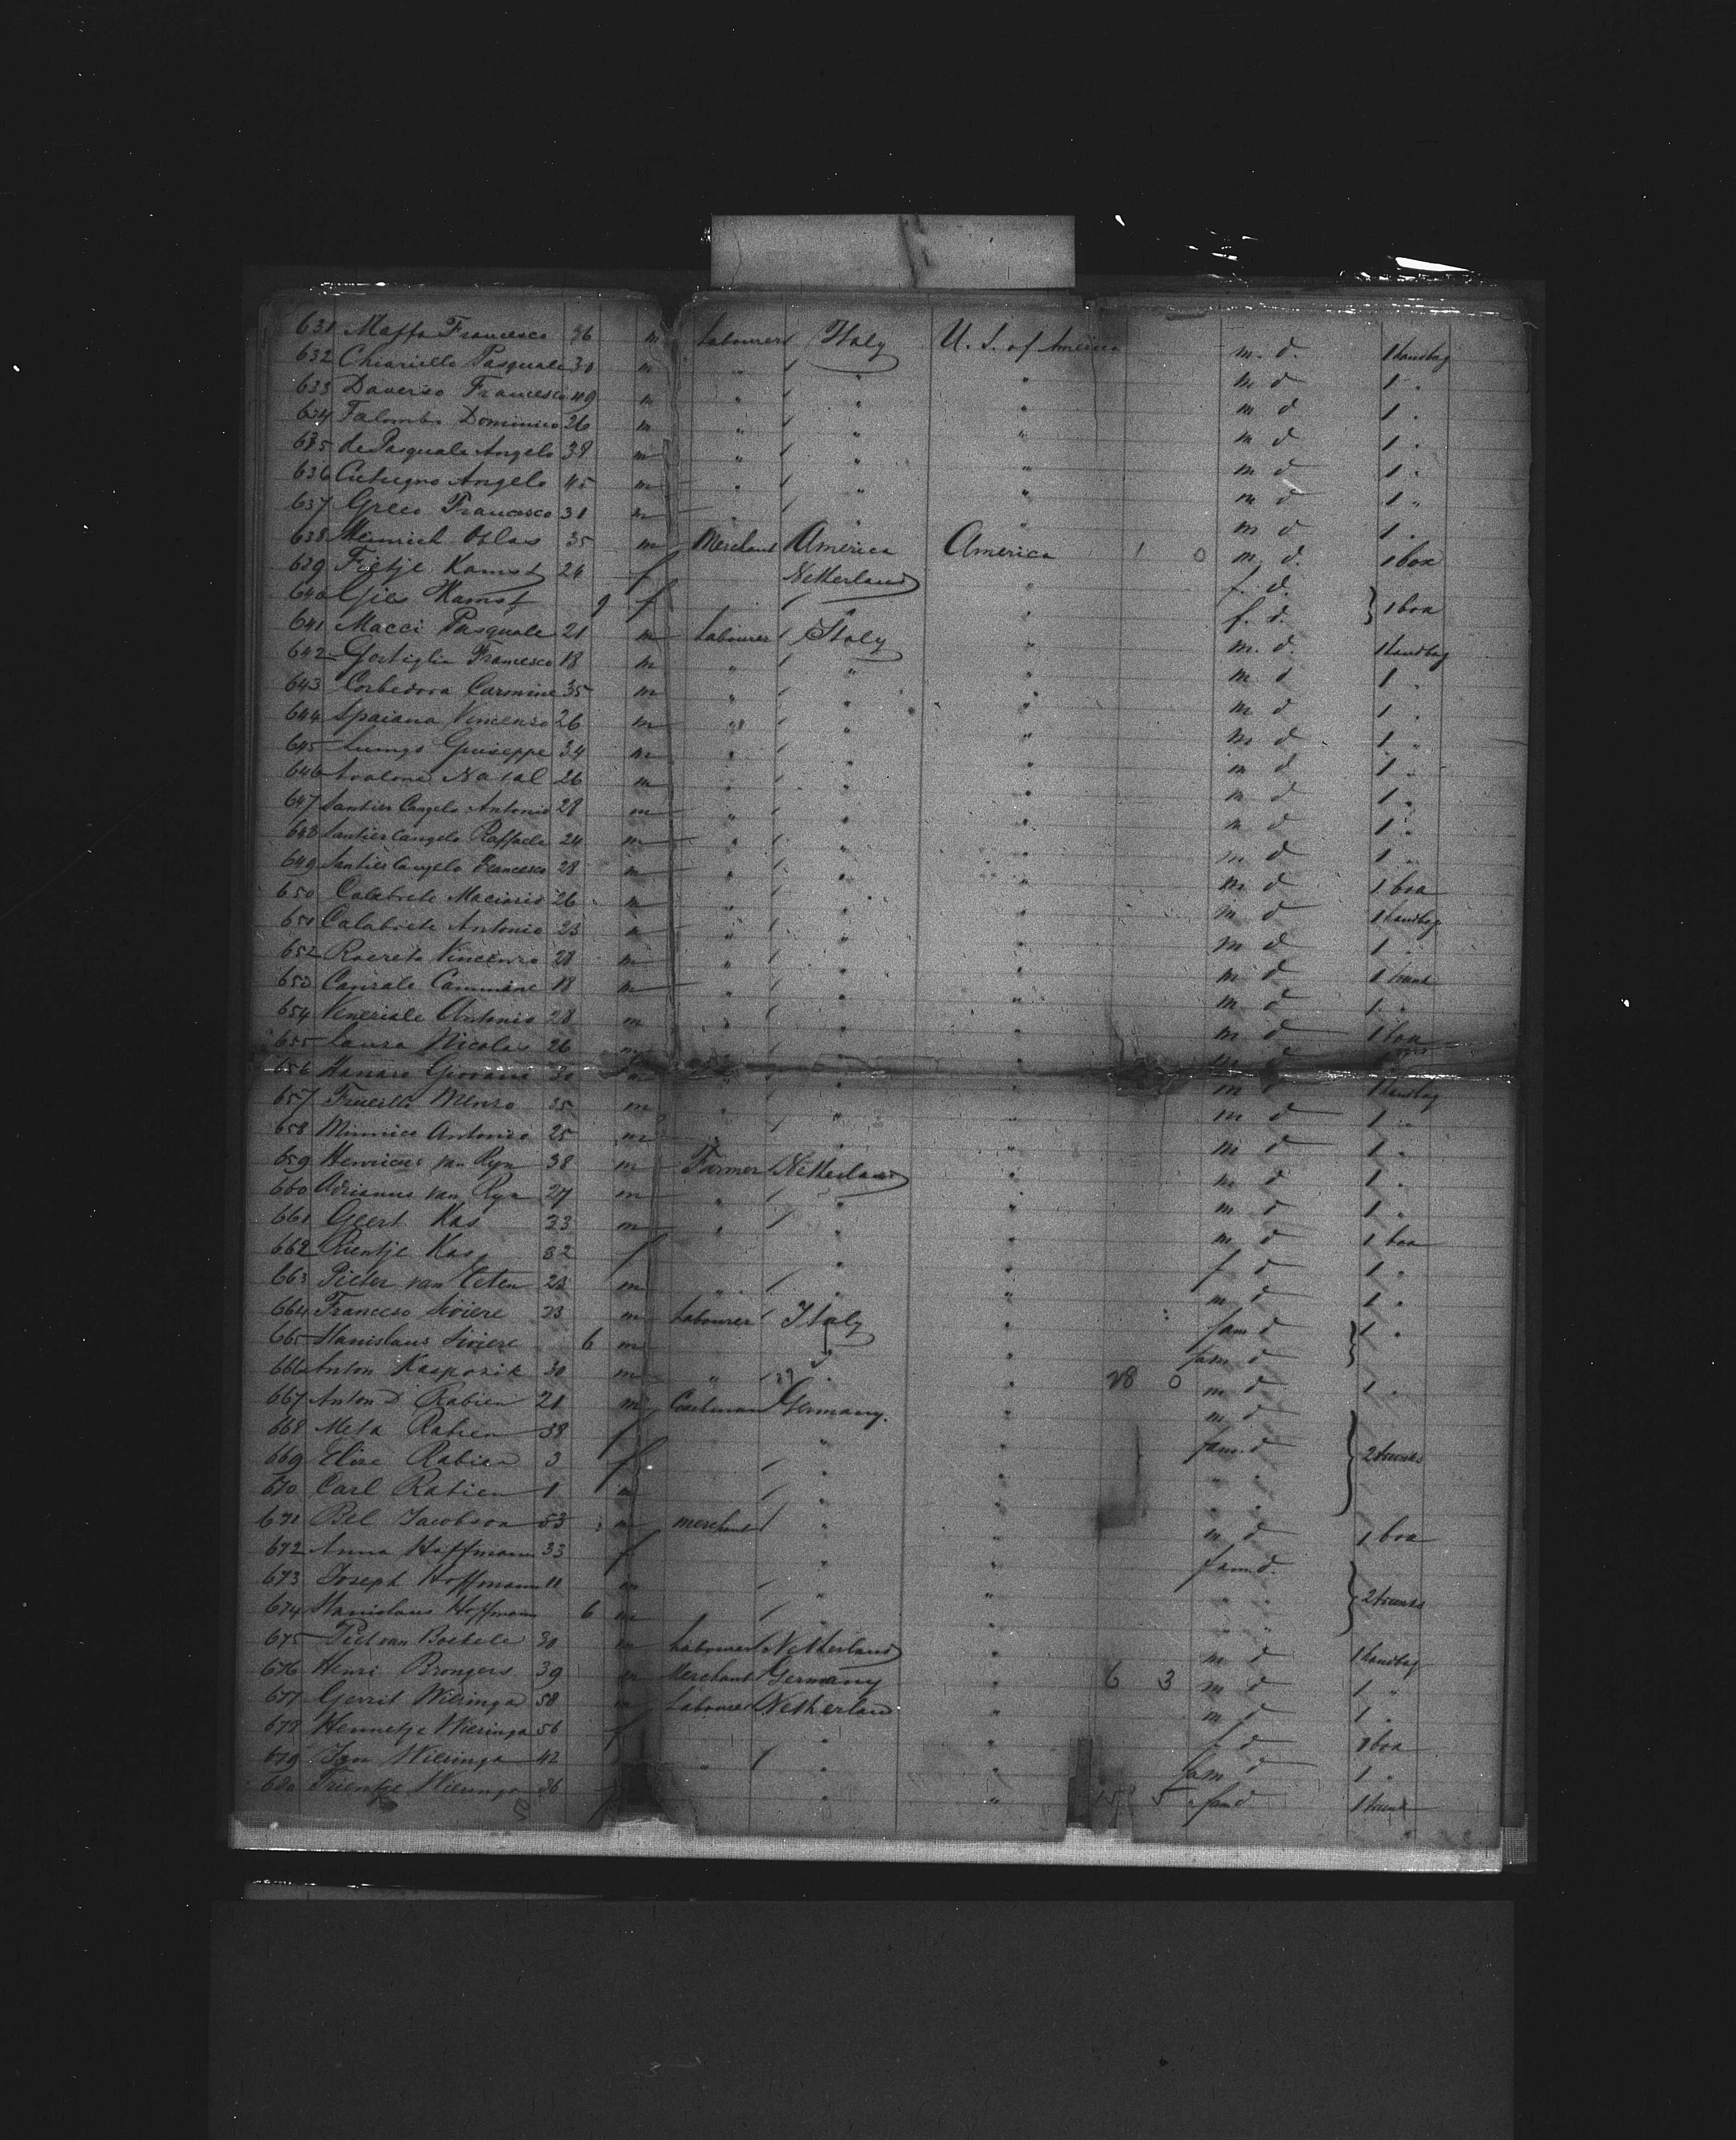 631 Maffo Francesco 36 m Labourer Italy U. S. of America m. d. 1 handbag
632 Chiariello Pasquale 30 m " " " m d 1 "
633 Daverso Francesco 49 m " " " m d 1 "
634 Palombo Dominico 26 m " " " m d 1 "
635 de Pasquale Angelo 38 m " " " m d 1 "
636 Cutugno Angelo 45 m " " " m d 1 "
637 Greco Francesco 31 m " " " m d 1 "
638 Heinrich 35 m Merchant America America 1 0 m. d. 1 box
639 Fietje Kamst 24 f Netherland " f. d.
640 Gies Kamst 9 f " f. d. } 1 box
641 Macci Pasquale 21 m Labourer Italy " m. d. 1 handbag
642 Francesco 18 m " " " m d 1 "
643 Corbedora Carmine 35 m " " " m d 1 "
644 Spaiana Vincenzo 26 m " " " m d 1 "
645 Luongo Guiseppe 34 m " " " m d 1 "
646 Avalone Natal 26 m " " " m d 1 "
647 Santier Cangelo Antonio 28 m " " " m d 1 "
648 Santier Cangelo Raffaele 24 m " " " m d 1 "
649 Santier Cangelo Francesco 28 m " " " m d 1 box
650 Calabrete 26 m " " " m d 1 handbag
651 Calabrete Antonio 23 m " " " m d 1 "
652 Vincenzo 28 m " " " m d 1 trunk
653 Canrale Cammine 18 m " " " m d 1 "
654 Veneriale Antonio 28 m " " " m d 1 box
655 Laura Nicolas 26 m " " " m d
656 Giovani 30 m " " m d 1 handbag
657 25 m " " " m d 1 "
658 Minnico Antonio 25 m " " " m d 1 "
659 Henricus van Ryn 38 m Farmer Netherland " m d 1 "
660 Adrianus van Ryn 27 m " " " m d 1 "
661 Geert Kas 33 m " " " m d 1 box
662 Rientje Kas 32 f " " f d 1 "
663 Pieter van Eeten 23 m " " " m d 1 "
664 Francesco Siviere 23 m Labourer Italy " fam d } 1 "
665 Stanislaus Siviere 6 m " fam d
666 Anton Kasporik 30 m " " " 28 0 m d 1 "
667 Anton D Rabien 21 m Coachman Germany. " m d
668 Meta Rabien 38 f " " fam. d } 2 trunks
669 Elise Rabien 3 f " " " "
670 Carl Rabien 1 m " " " "
671 Bel Jacobson 53 m merchant " " m d 1 box
672 Anna Hoffmann 33 f " " fam d.
673 Joseph Hoffmann 11 m " " " " } 2 trunks
674 Stanislaus Hoffmann 6 m " " " "
675 Piet van Boekele 30 m Labourer Netherland " m d 1 handbag
676 Henri Brongers 39 m Merchant Germany " 6 3 m d 1 "
677 Gerrit Wieringa 58 m Labourer Netherland " m d 1 "
678 Hennetje Wieringa 56 f " " f d 1 box
679 Wieringa 42 " " " fam d 1 "
680 Trientje Wieringa 36 f " " 15 5 fam d 1 trunk